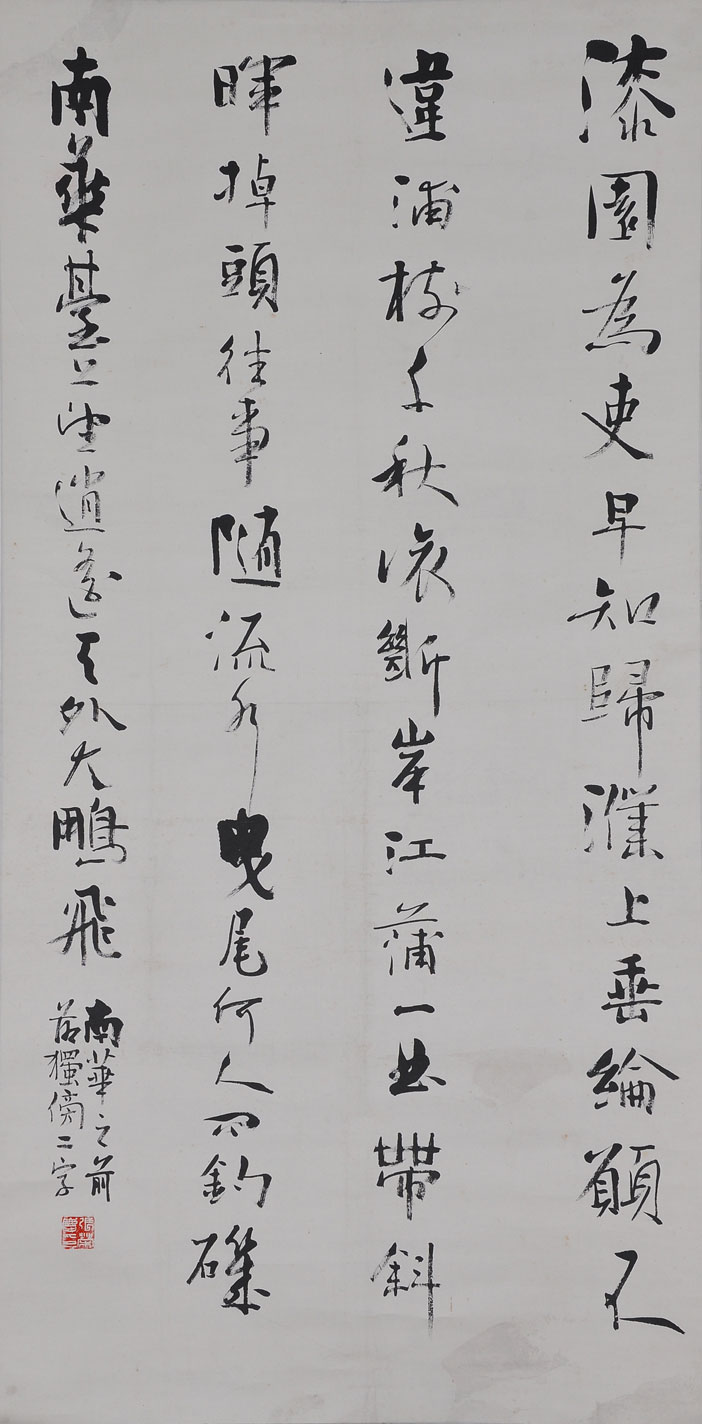 漆園為吏早知歸濮上垂綸願不
違浦樹千秋依斷岸江蒲一曲帶斜
暉掉頭往事隨流水曳尾何人問釣磯
南華臺上望逍遙天外大鵬飛
南華之前
落獨傍二字